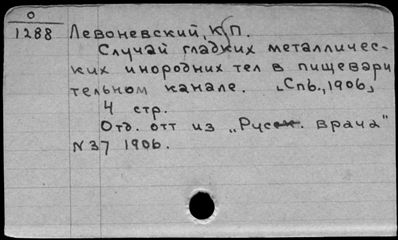 О
1288 Левоневский, К.П.
Случай гладких металличес-
ких инородних тел в пищевари
тельном канале. [Спб., 1906]
4 стр.
Отд. отт из „Русск. врача"
N37 1906.